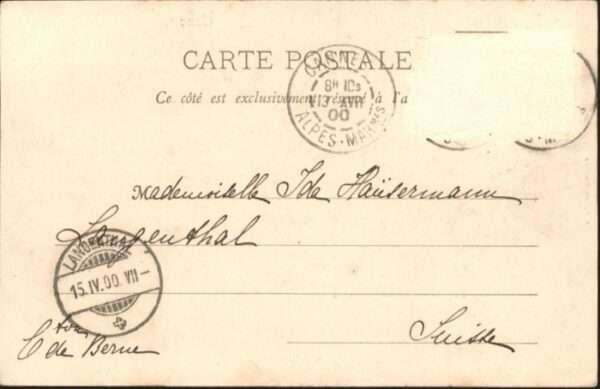 CARTE POSTALE
Ce côté est exclusivement réservé à l'a
CANNES
8H 10s
13 AVRIL
00
ALPES-MARMES
Mademoiselle Ida Haüsermann
Langenthal
LANGENTHAL
15.IV.00.VII-
Cton de Berne
Suisse